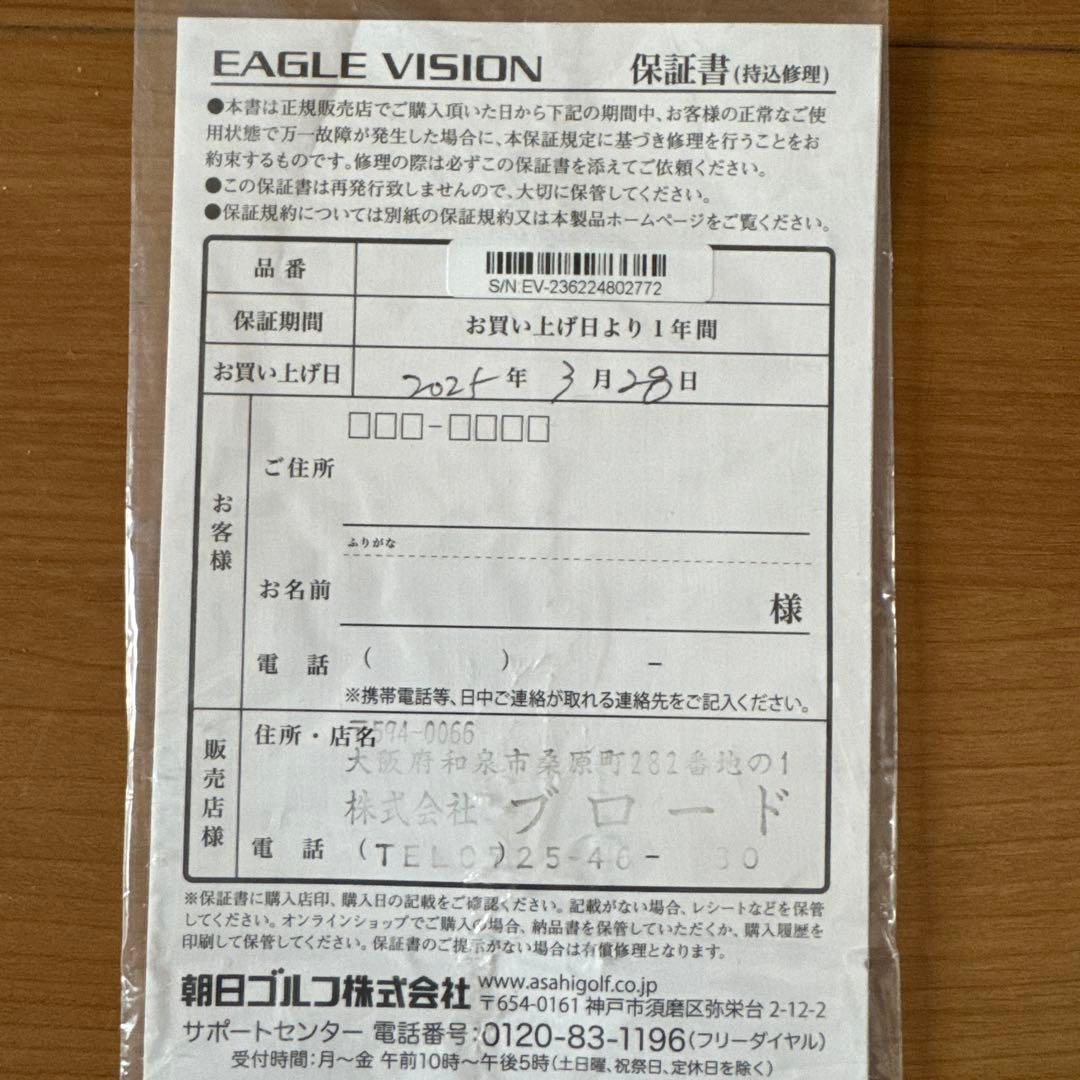 EAGLE VISION 保証書(持込修理)
●本書は正規販売店でご購入頂いた日から下記の期間中、お客様の正常なご使
用状態で万一故障が発生した場合に、本保証規定に基づき修理を行うことをお
約束するものです。修理の際は必ずこの保証書を添えてご依頼ください。
●この保証書は再発行致しませんので、大切に保管してください。
●保証規約については別紙の保証規約又は本製品ホームページをご覧ください。
品番
S/N:EV-236224802772
保証期間 お買い上げ日より1年間
お買い上げ日 2025年 3月28日
お客様
□□□-□□□□
ご住所
ふりがな
お名前 様
電話 ( ) -
※携帯電話等、日中ご連絡が取れる連絡先をご記入ください。
販売店様
住所・店名
〒594-0066
大阪府和泉市桑原町282番地の1
株式会社 ブロード
電話 (TEL0725-46- 30
※保証書に購入店印、購入日の記載をご確認ください。記載がない場合、レシートなどを保管
してください。オンラインショップでご購入の場合、納品書を保管していただくか、購入履歴を
印刷して保管してください。保証書のご提示がない場合は有償修理となります。
朝日ゴルフ株式会社 www.asahigolf.co.jp
〒654-0161 神戸市須磨区弥栄台 2-12-2
サポートセンター 電話番号:0120-83-1196(フリーダイヤル)
受付時間:月～金 午前10時～午後5時(土日曜、祝祭日、定休日を除く)